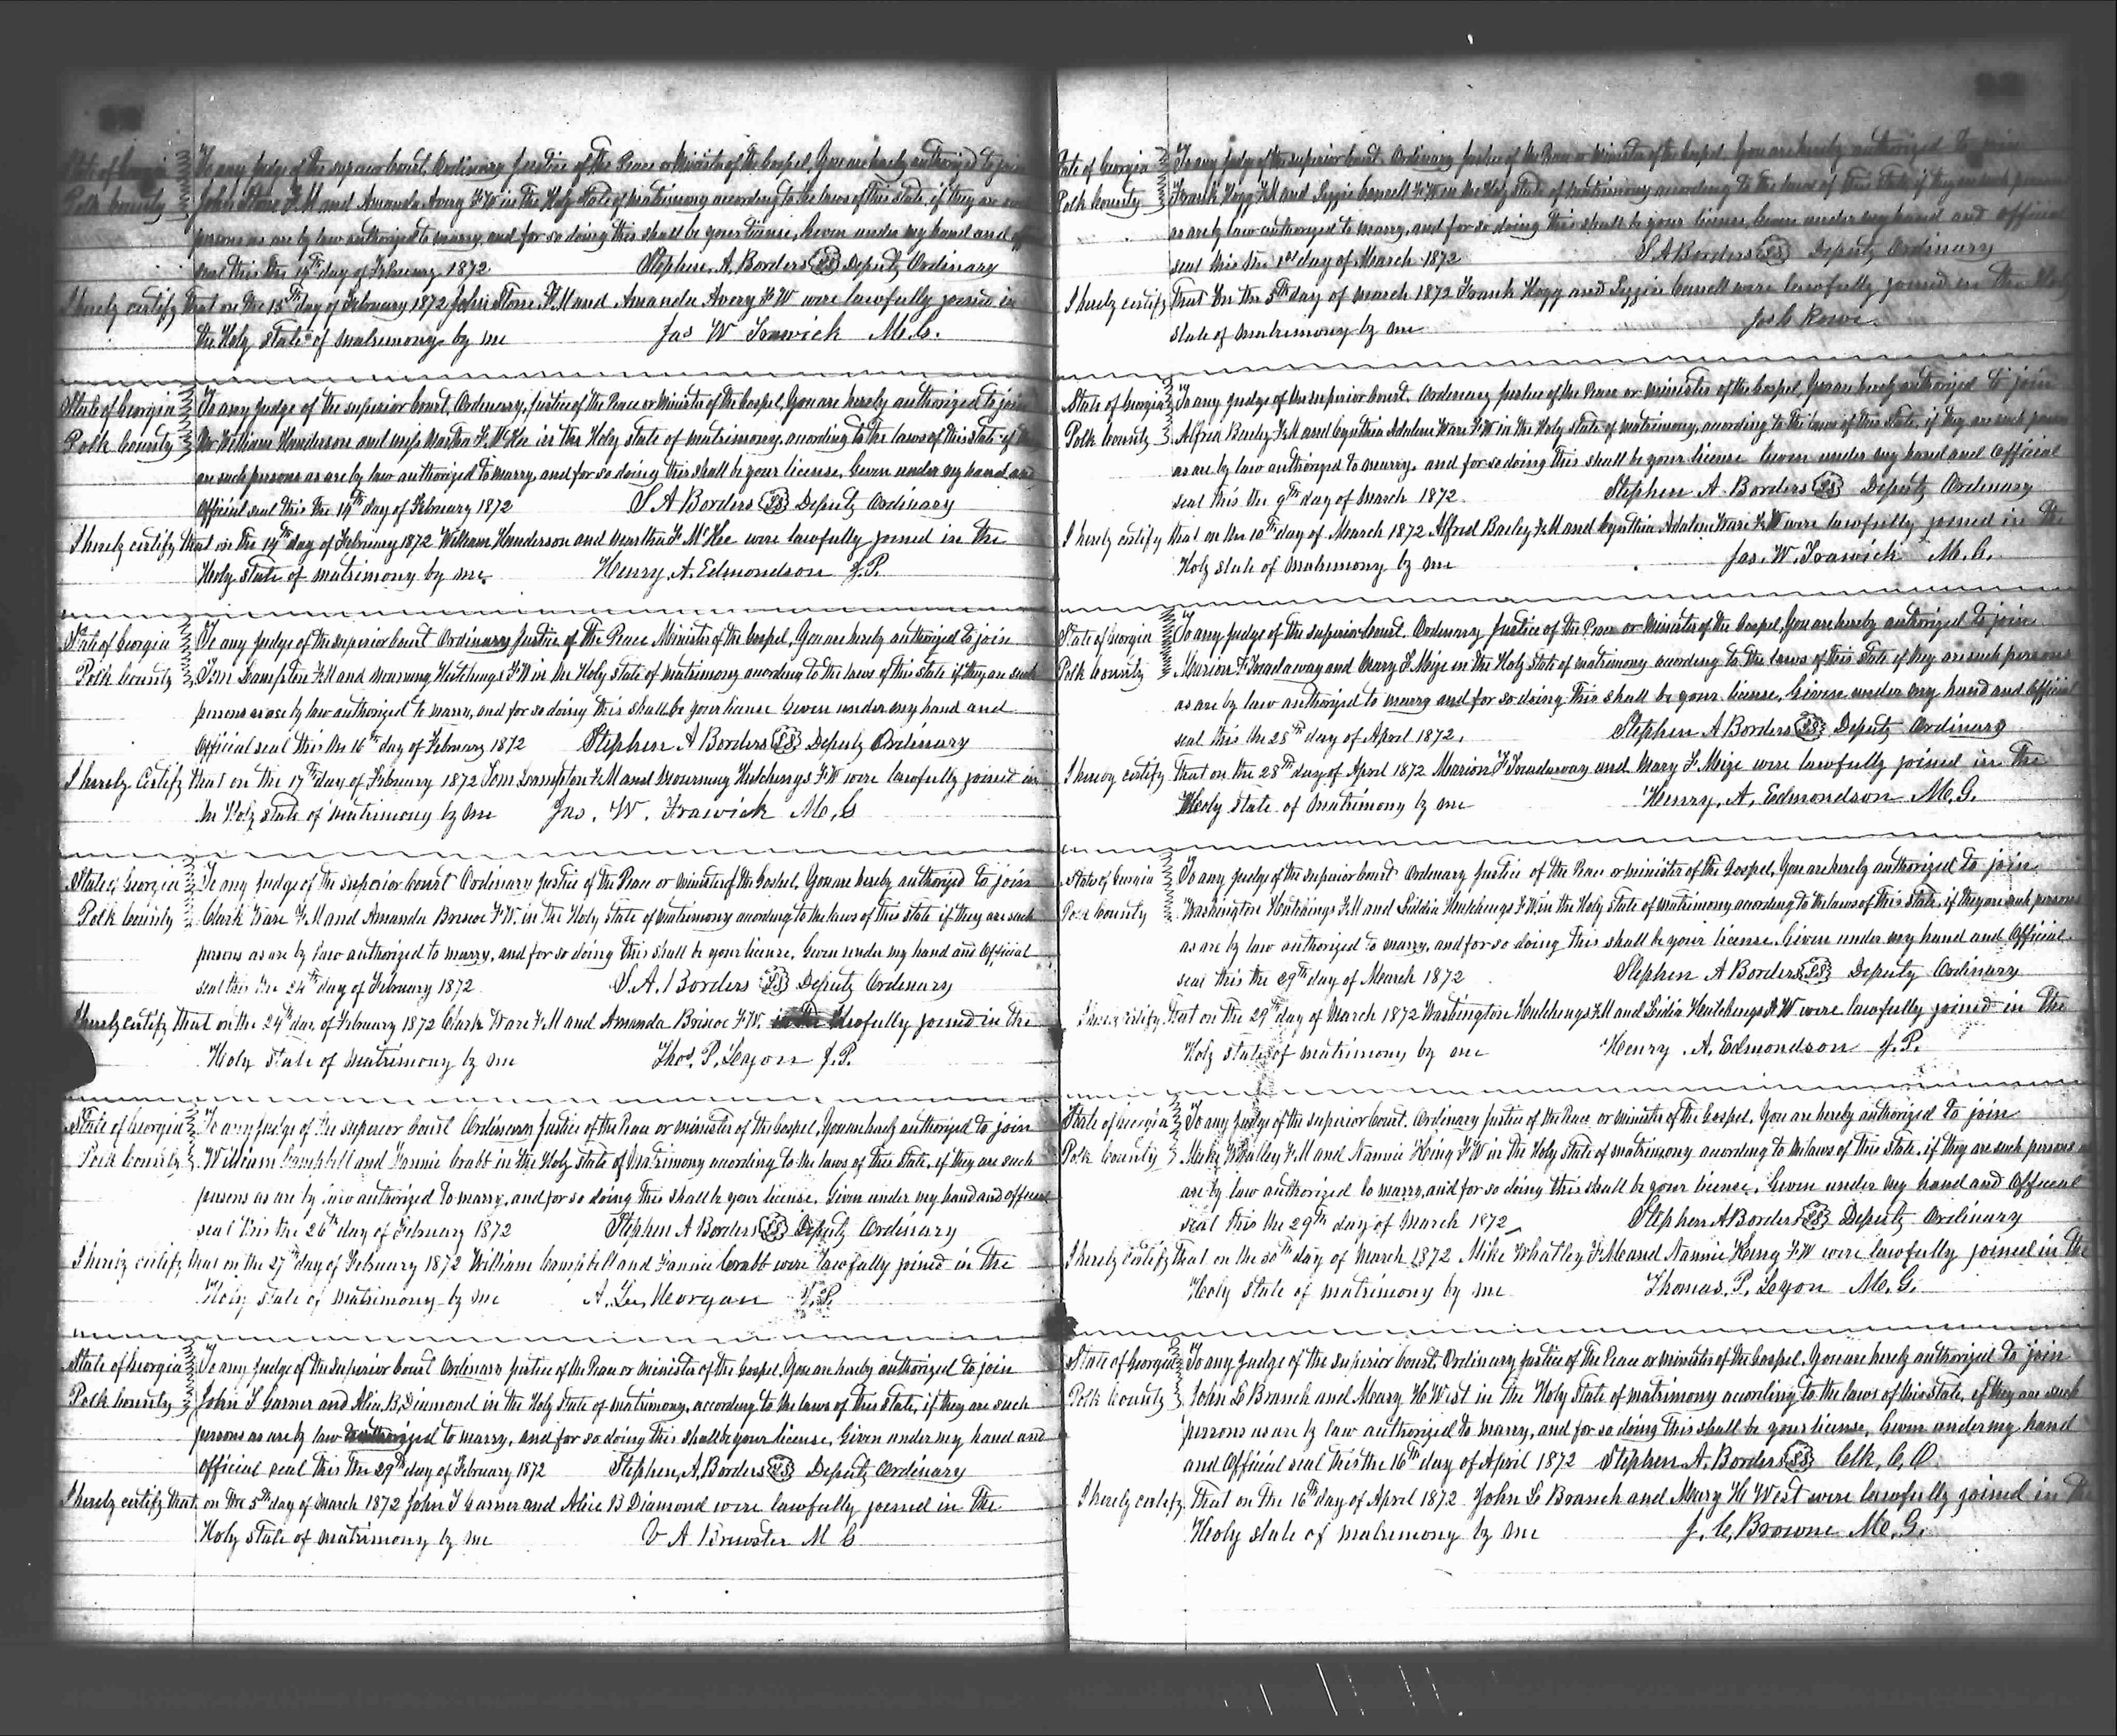 State of Georgia To any Judge of the superior Court, Ordinary Justice of the Peace or Minister of the Gospel, You are hereby authorized to join
Polk County John Stone F.M and Amanda Avery F.W in the Holy State of Matrimony according to the laws of this State, if they are such
persons as are by law authorized to marry, and for so doing this shall be your license, Given under my hand and
seal this the 14th day of February 1872. Stephen. A. Borders LS Deputy Ordinary
I hereby certify that on the 15th day of February 1872 John Stone F.M and Amanda Avery F.W were lawfully joined in
the Holy State of Matrimony by me Jas W Trawick M.G.
State of Georgia To any Judge of the superior Court, Ordinary, Justice of the Peace or Minister of the Gospel, You are hereby authorized to join
Polk County Mr William Henderson and Miss Martha F. McKee in the Holy state of matrimony, according to the laws of this State if they
are such persons as are by law authorized to marry, and for so doing this shall be your license, Given under my hand and
Official seal this the 14th day of February 1872 S A Borders LS Deputy Ordinary
I hereby certify that on the 14th day of February 1872 William Henderson and Martha F McKee were lawfully joined in the
Holy state of matrimony by me, Henry. A. Edmondson J.P.
State of Georgia To any Judge of the superior Court Ordinary Justice of the Peace Minister of the Gospel, You are hereby authorized to join
Polk County Tom Lampton F.M and Mourning Hutchings F.W in the Holy State of Matrimony according to the laws of this state if they are such
persons as are by law authorized to marry, and for so doing this shall be your license Given under my hand and
Official seal this the 16th day of February 1872 Stephen A Borders LS Deputy Ordinary
I hereby Certify that on the 17th day of February 1872 Tom Lampton F.M and Mourning Hutchings F.W were lawfully joined in
the Holy state of Matrimony by me Jas. W. Trawick M.G
State of Georgia To any Judge of the superior Court Ordinary Justice of the Peace or Minister of the Gospel, You are hereby authorized to join
Polk County Clark Ware F.M and Amanda Briscoe F.W. in the Holy State of Matrimony according to the laws of this state if they are such
persons as are by law authorized to marry, and for so doing this shall be your license, Given under my hand and Official
seal this the 24th day of February 1872 S. A. Borders LS Deputy Ordinary
I hereby certify that on the 24th day of February 1872 Clark Ware F.M and Amanda Briscoe F.W. lawfully joined in the
Holy State of matrimony by me Thos. P. Lyon J.P.
State of Georgia To any Judge of the superior Court Ordinary Justice of the Peace or minister of the Gospel, You are hereby authorized to join
Polk County William Campbell and Fannie Crabb in the Holy state of Matrimony according to the laws of this State, if they are such
persons as are by law authorized to marry, and for so doing this shall be your license, Given under my hand and official
seal this the 26th day of February 1872 Stephen A Borders LS Deputy Ordinary
I hereby certify that on the 27th day of February 1872 William Campbell and Fannie Crabb were lawfully joined in the
Holy State of matrimony by me A. Morgan J.P.
State of Georgia To any Judge of the Superior Court Ordinary Justice of the Peace or Minister of the Gospel, You are hereby authorized to join
Polk County John T Garner and Alice, B, Diamond in the Holy State of Matrimony, according to the laws of this State, if they are such
persons as are by law authorized to marry, and for so doing this shall be your license, Given under my hand and
official seal this the 29th day of February 1872 Stephen, A, Borders LS Deputy Ordinary
I hereby certify that on the 5th day of March 1872 John T Garner and Alice B Diamond were lawfully joined in the
Holy State of Matrimony by me V A Brewster M G
State of Georgia To any Judge of the superior Court. Ordinary Justice of the Peace or Minister of the Gospel You are hereby authorized to join
Polk County Frank Hogg F.M and Lizzie F.W in the Holy State of Matrimony according to the laws of this State if they are such persons
as are by law authorized to marry, and for so doing this shall be your license, Given under my hand and official
seal this the 1st day of March 1872 S A Borders LS Deputy Ordinary
I hereby certify that on the 5th day of March 1872 Frank Hogg and Lizzie were lawfully joined in the Holy
State of Matrimony by me Jos C Rowe.
State of Georgia To any Judge of the superior Court. Ordinary Justice of the Peace or Minister of the Gospel, You are hereby authorized to join
Polk County Alfred Bailey F.M and Cynthia Adaline Ware F.W in the Holy State of Matrimony, according to the laws of this State, if they are such persons
as are by law authorized to marry, and for so doing this shall be your license Given under my hand and Official
seal this the 9th day of March 1872. Stephen A. Borders LS Deputy Ordinary
I hereby certify that on the 10th day of March 1872 Alfred Bailey F.M and Cynthia Adaline Ware F.W were lawfully joined in the
Holy state of Matrimony, by me Jas. W. Trawick M.G.
State of Georgia To any Judge of the superior Court. Ordinary Justice of the Peace or Minister of the Gospel, You are hereby authorized to join
Polk County Marion F Treadaway and Mary F. Mize in the Holy State of matrimony according to the laws of this State if they are such persons
as are by law authorized to marry and for so doing this shall be your license, Given under my hand and Official
seal this the 28th day of April 1872. Stephen A Borders LS Deputy Ordinary
I hereby certify that on the 28th day of April 1872 Marion F Treadaway and Mary F. Mize were lawfully joined in the
Holy State of Matrimony by me Henry. A. Edmondson M.G.
State of Georgia To any Judge of the superior Court Ordinary Justice of the Peace or minister of the Gospel, You are hereby authorized to join
Polk County Washington Hutchings F.M and Liddia Hutchings F.W, in the Holy State of Matrimony according to the laws of this State, if they are such persons
as are by law authorized to marry, and for so doing this shall be your license, Given under my hand and Official
seal this the 29th day of March 1872 Stephen A Borders LS Deputy Ordinary
I hereby certify that on the 29th day of March 1872 Washington Hutchings F.M and Lidia Hutchings F.W were lawfully joined in the
Holy State of matrimony by me Henry. A. Edmondson J.P.
State of Georgia To any Judge of the superior Court. Ordinary Justice of the Peace or Minister of the Gospel, You are hereby authorized to join
Polk County Mike Whatley F.M and Nannie King F.W in the Holy State of matrimony according to the laws of this State, if they are such persons as
are by law authorized to marry, and for so doing this shall be your license, Given under my hand and Official
seal this the 29th day of March 1872 Stephen A Borders LS Deputy Ordinary
I hereby Certify that on the 30th day of March 1872 Mike Whatley F.M and Nannie King F.W were lawfully joined in the
Holy State of matrimony by me Thomas. P. Lyon M.G.
State of Georgia To any Judge of the superior Court. Ordinary Justice of the Peace or minister of the Gospel. You are hereby authorized to join
Polk County John L Branch and Mary H West in the Holy State of matrimony according to the laws of this State, if they are such
persons as are by law authorized to marry, and for so doing this shall be your license, Given under my hand
and Official seal this the 16th day of April 1872 Stephen A. Borders LS Clk, C, O.
I hereby certify, that on the 16th day of April 1872 John L Branch and Mary H West were lawfully joined in the
Holy state of matrimony by me J. C. Browne M.G.